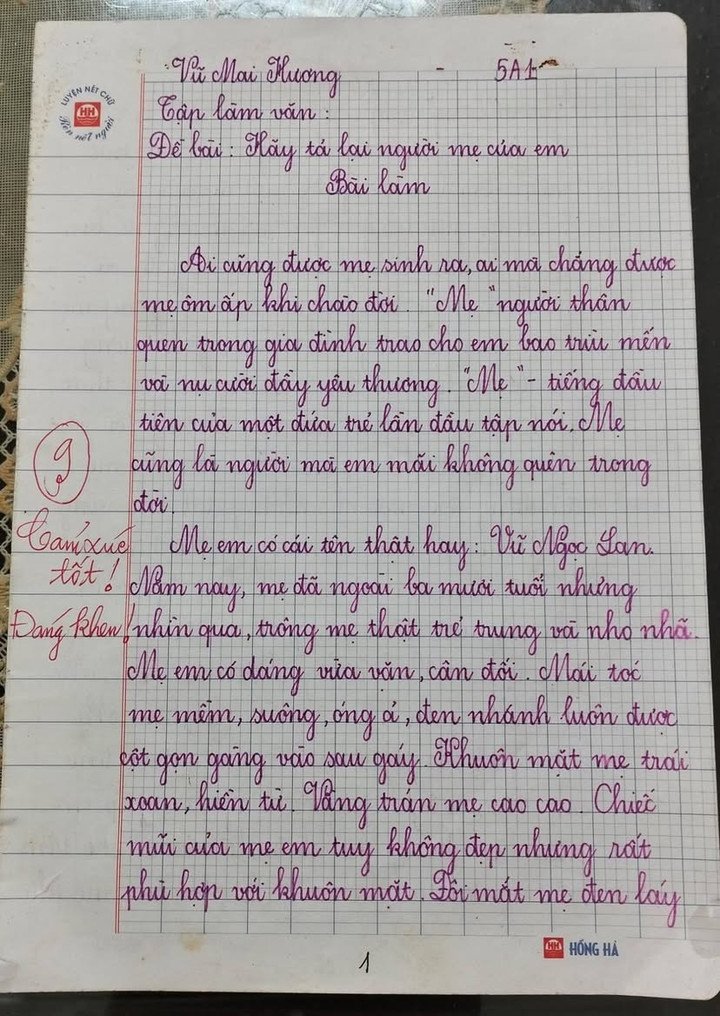 Vũ Mai Hương - 5A1
Tập làm văn :
Đề bài : Hãy tả lại người mẹ của em
Bài làm
LUYỆN NÉT CHỮ
HH
Rèn nết người
Ai cũng được mẹ sinh ra, ai mà chẳng được
mẹ ôm ấp khi chào đời. "Mẹ" người thân
quen trong gia đình trao cho em bao trìu mến
và nụ cười đầy yêu thương. "Mẹ" - tiếng đầu
tiên của một đứa trẻ lần đầu tập nói. Mẹ
cũng là người mà em mãi không quên trong
đời.
9
Cảm xúc
tốt !
Đáng khen !
Mẹ em có cái tên thật hay : Vũ Ngọc Lan.
Năm nay, mẹ đã ngoài ba mươi tuổi nhưng
nhìn qua, trông mẹ thật trẻ trung và nho nhã.
Mẹ em có dáng vừa vặn, cân đối. Mái tóc
mẹ mềm, suông, óng ả, đen nhánh luôn được
cột gọn gàng vào sau gáy. Khuôn mặt mẹ trái
xoan, hiền từ. Vầng trán mẹ cao cao. Chiếc
mũi của mẹ em tuy không đẹp nhưng rất
phù hợp với khuôn mặt. Đôi mắt mẹ đen láy
HH HỒNG HÀ
1